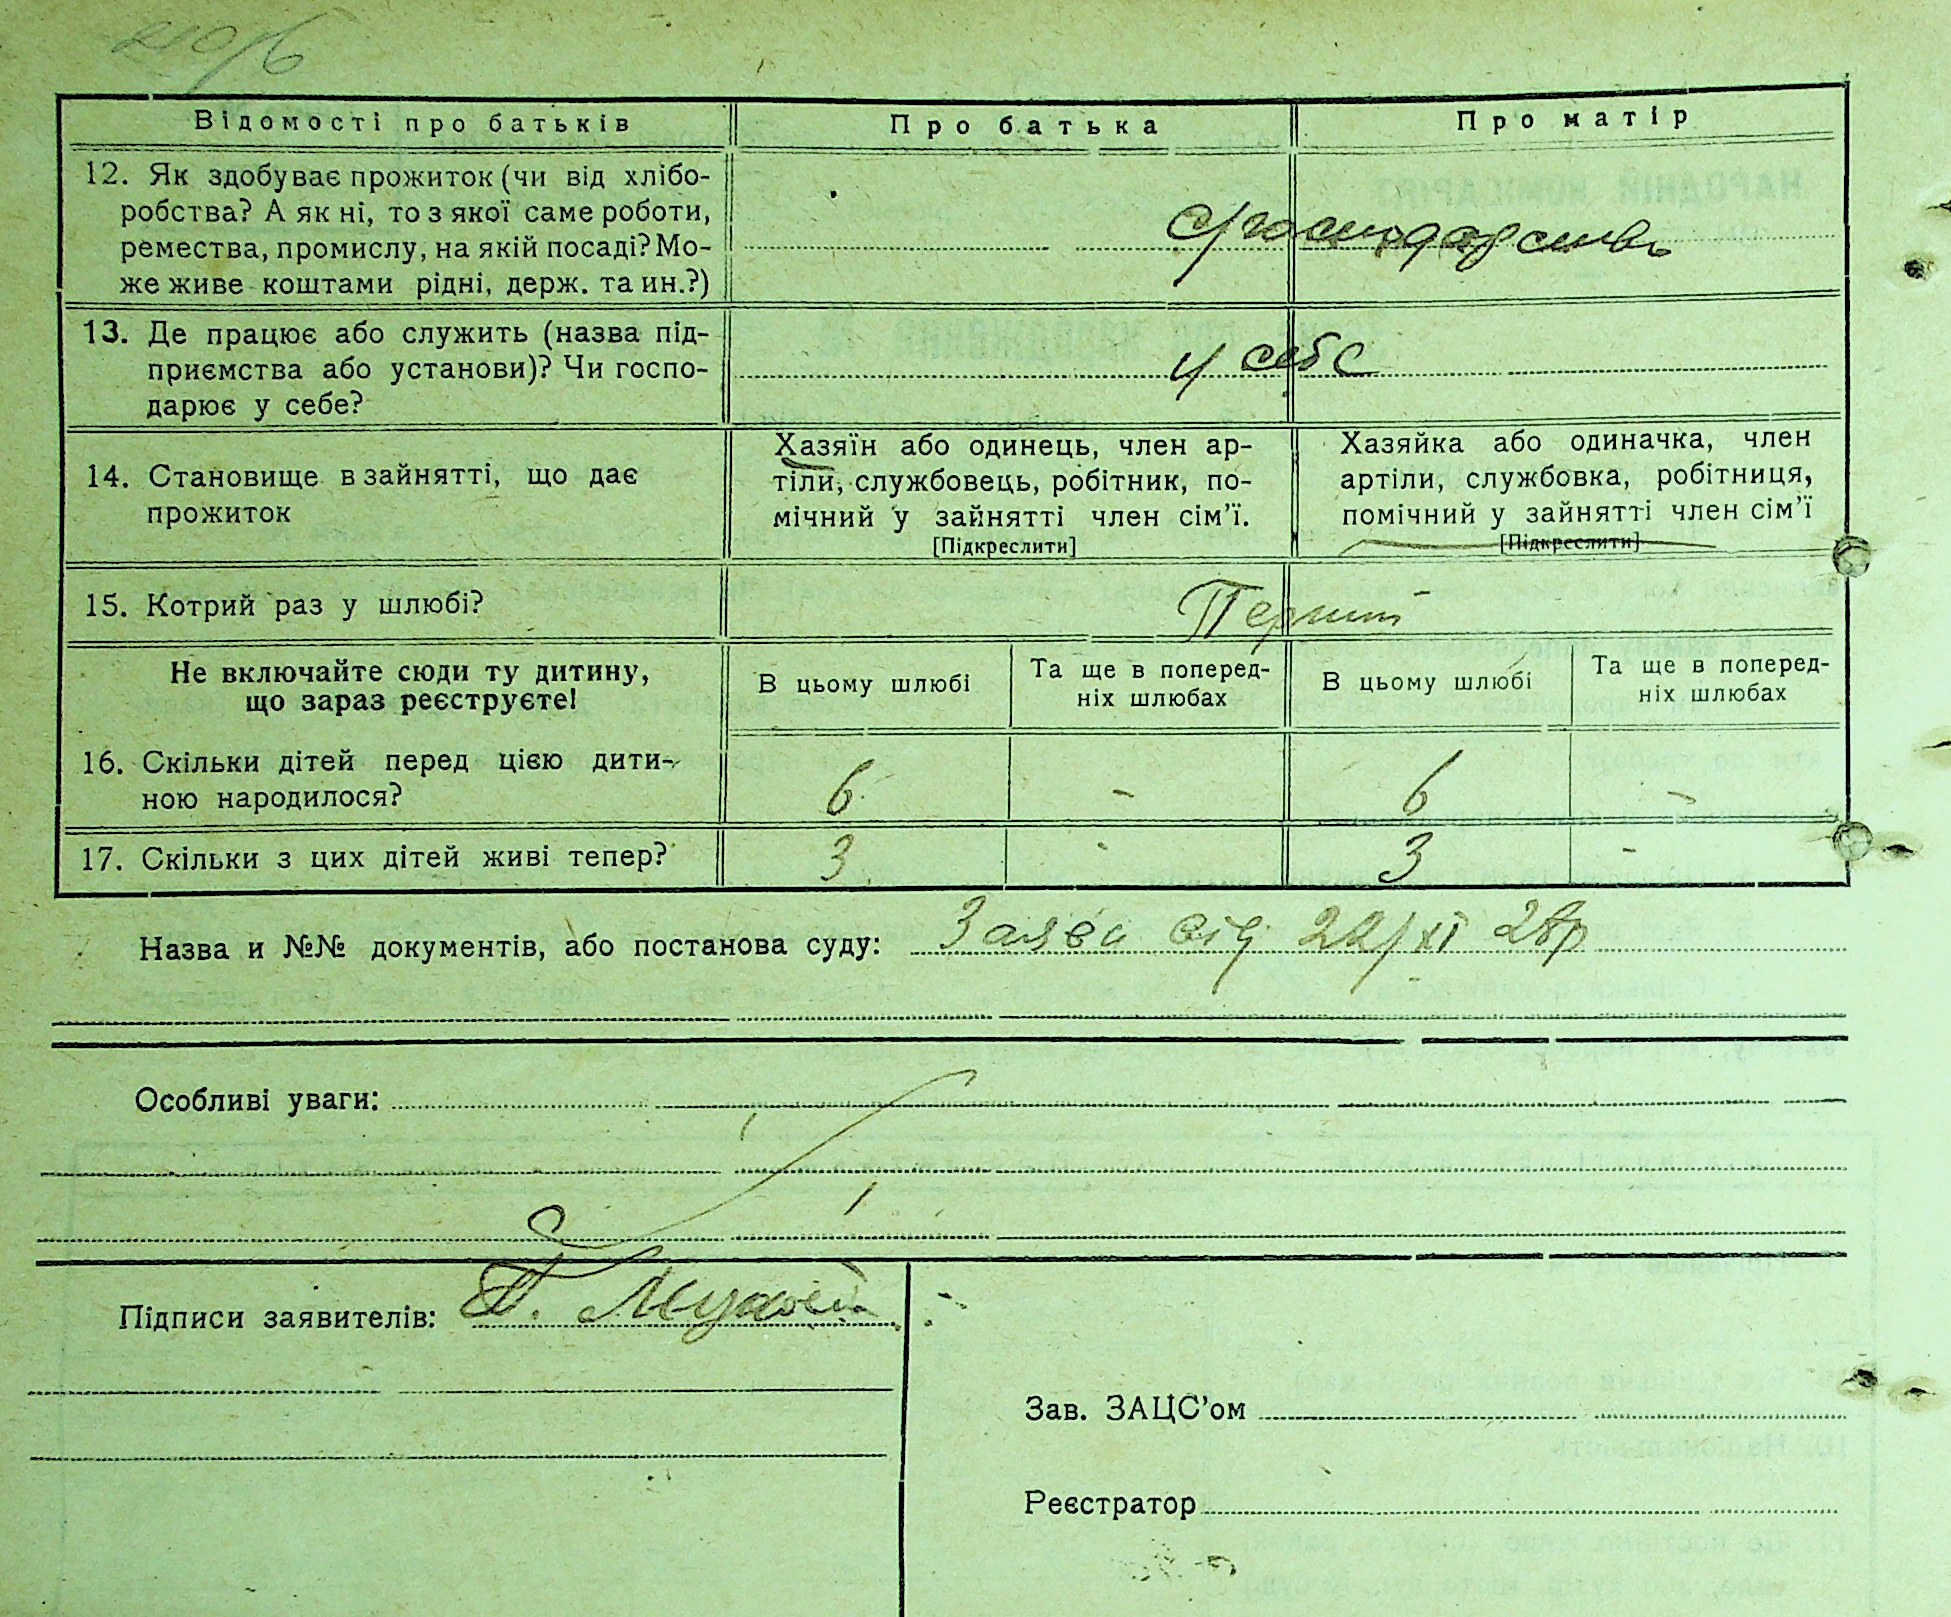 Відомості про батьків Про батька Про матір
12. Як здобуває прожиток (чи від хлібо-
робства? А як ні, то з якої саме роботи,
ремества, промислу, на якій посаді? Мо-
же живе коштами рідні, держ. та ин.?)
с/господарство
13. Де працює або служить (назва під-
приємства або установи)? Чи госпо-
дарює у себе?
у себе
14. Становище в зайнятті, що дає
прожиток
Хазяїн або одинець, член ар-
тіли, службовець, робітник, по-
мічний у зайнятті член сім'ї.
[Підкреслити]
Хазяйка або одиначка, член
артіли, службовка, робітниця,
помічний у зайнятті член сім'ї
[Підкреслити]
15. Котрий раз у шлюбі? Перший
Не включайте сюди ту дитину,
що зараз реєструєте!
В цьому шлюбі
Та ще в поперед-
ніх шлюбах
В цьому шлюбі
Та ще в поперед-
ніх шлюбах
16. Скільки дітей перед цією дити-
ною народилося?
6 - 6 -
17. Скільки з цих дітей живі тепер? 3 - 3 -
Назва и №№ документів, або постанова суду: Заява від 22/XI 28р
Особливі уваги:
Підписи заявителів:
Зав. ЗАЦС'ом
Реєстратор